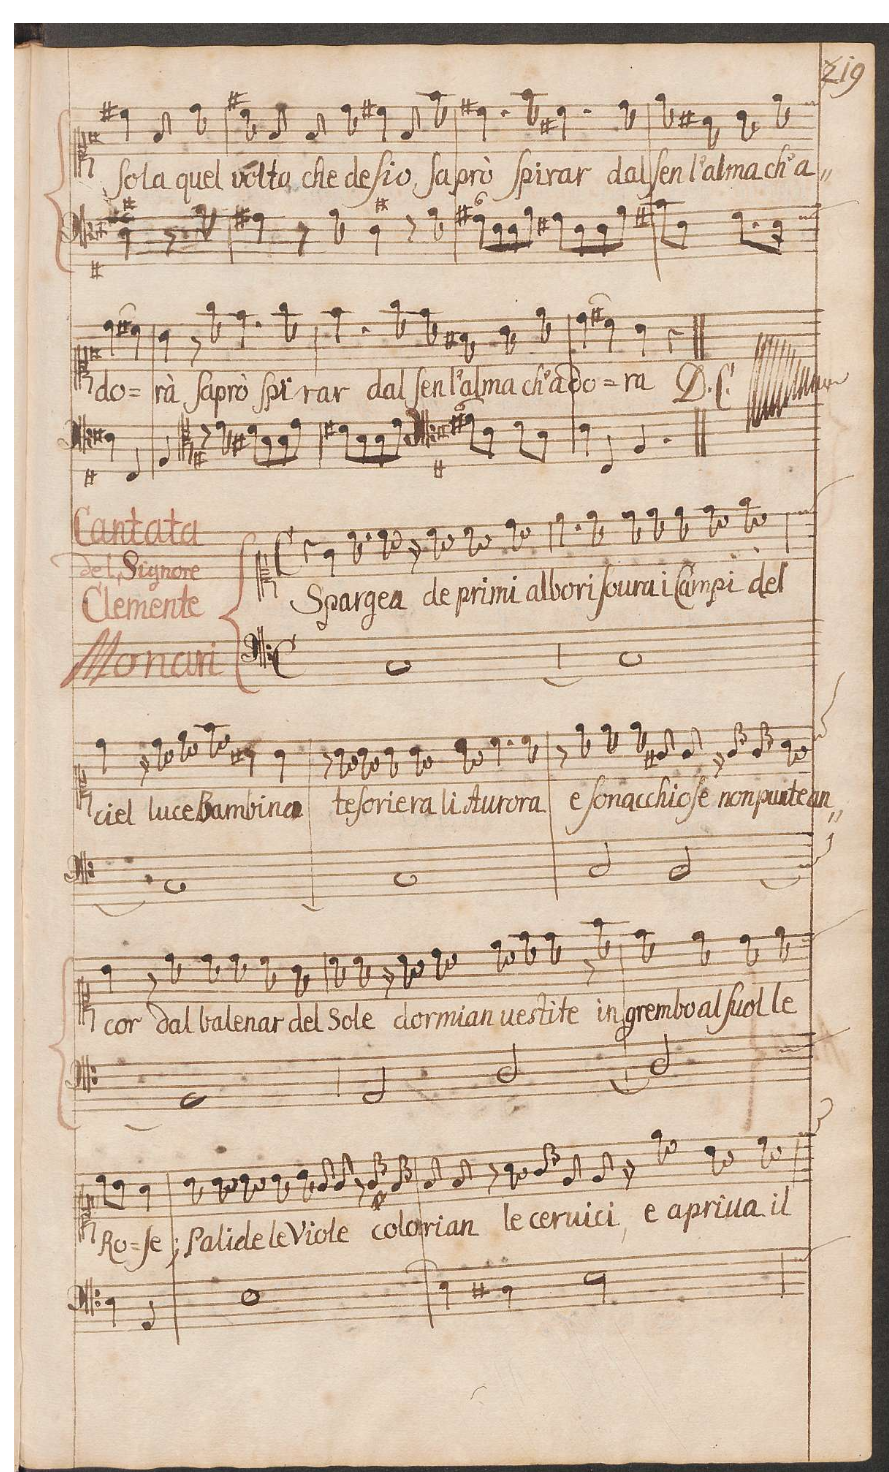 219
Sola quel volta che desio, saprò spirar dal sen l'alma ch'a„
do= rà saprò spirar dal sen l'alma ch'ado=ra D.C.
Cantata
del Signore
Clemente
Monari
Spargea de primi albori soura i Campi del
ciel luce Bambina tesoriera li Aurora e sonacchiose non puntean„
cor dal balenar del Sole dormian uestite in grembo al suol le
Ro=se; Palide le Viole colorian le ceruici, e apriua il